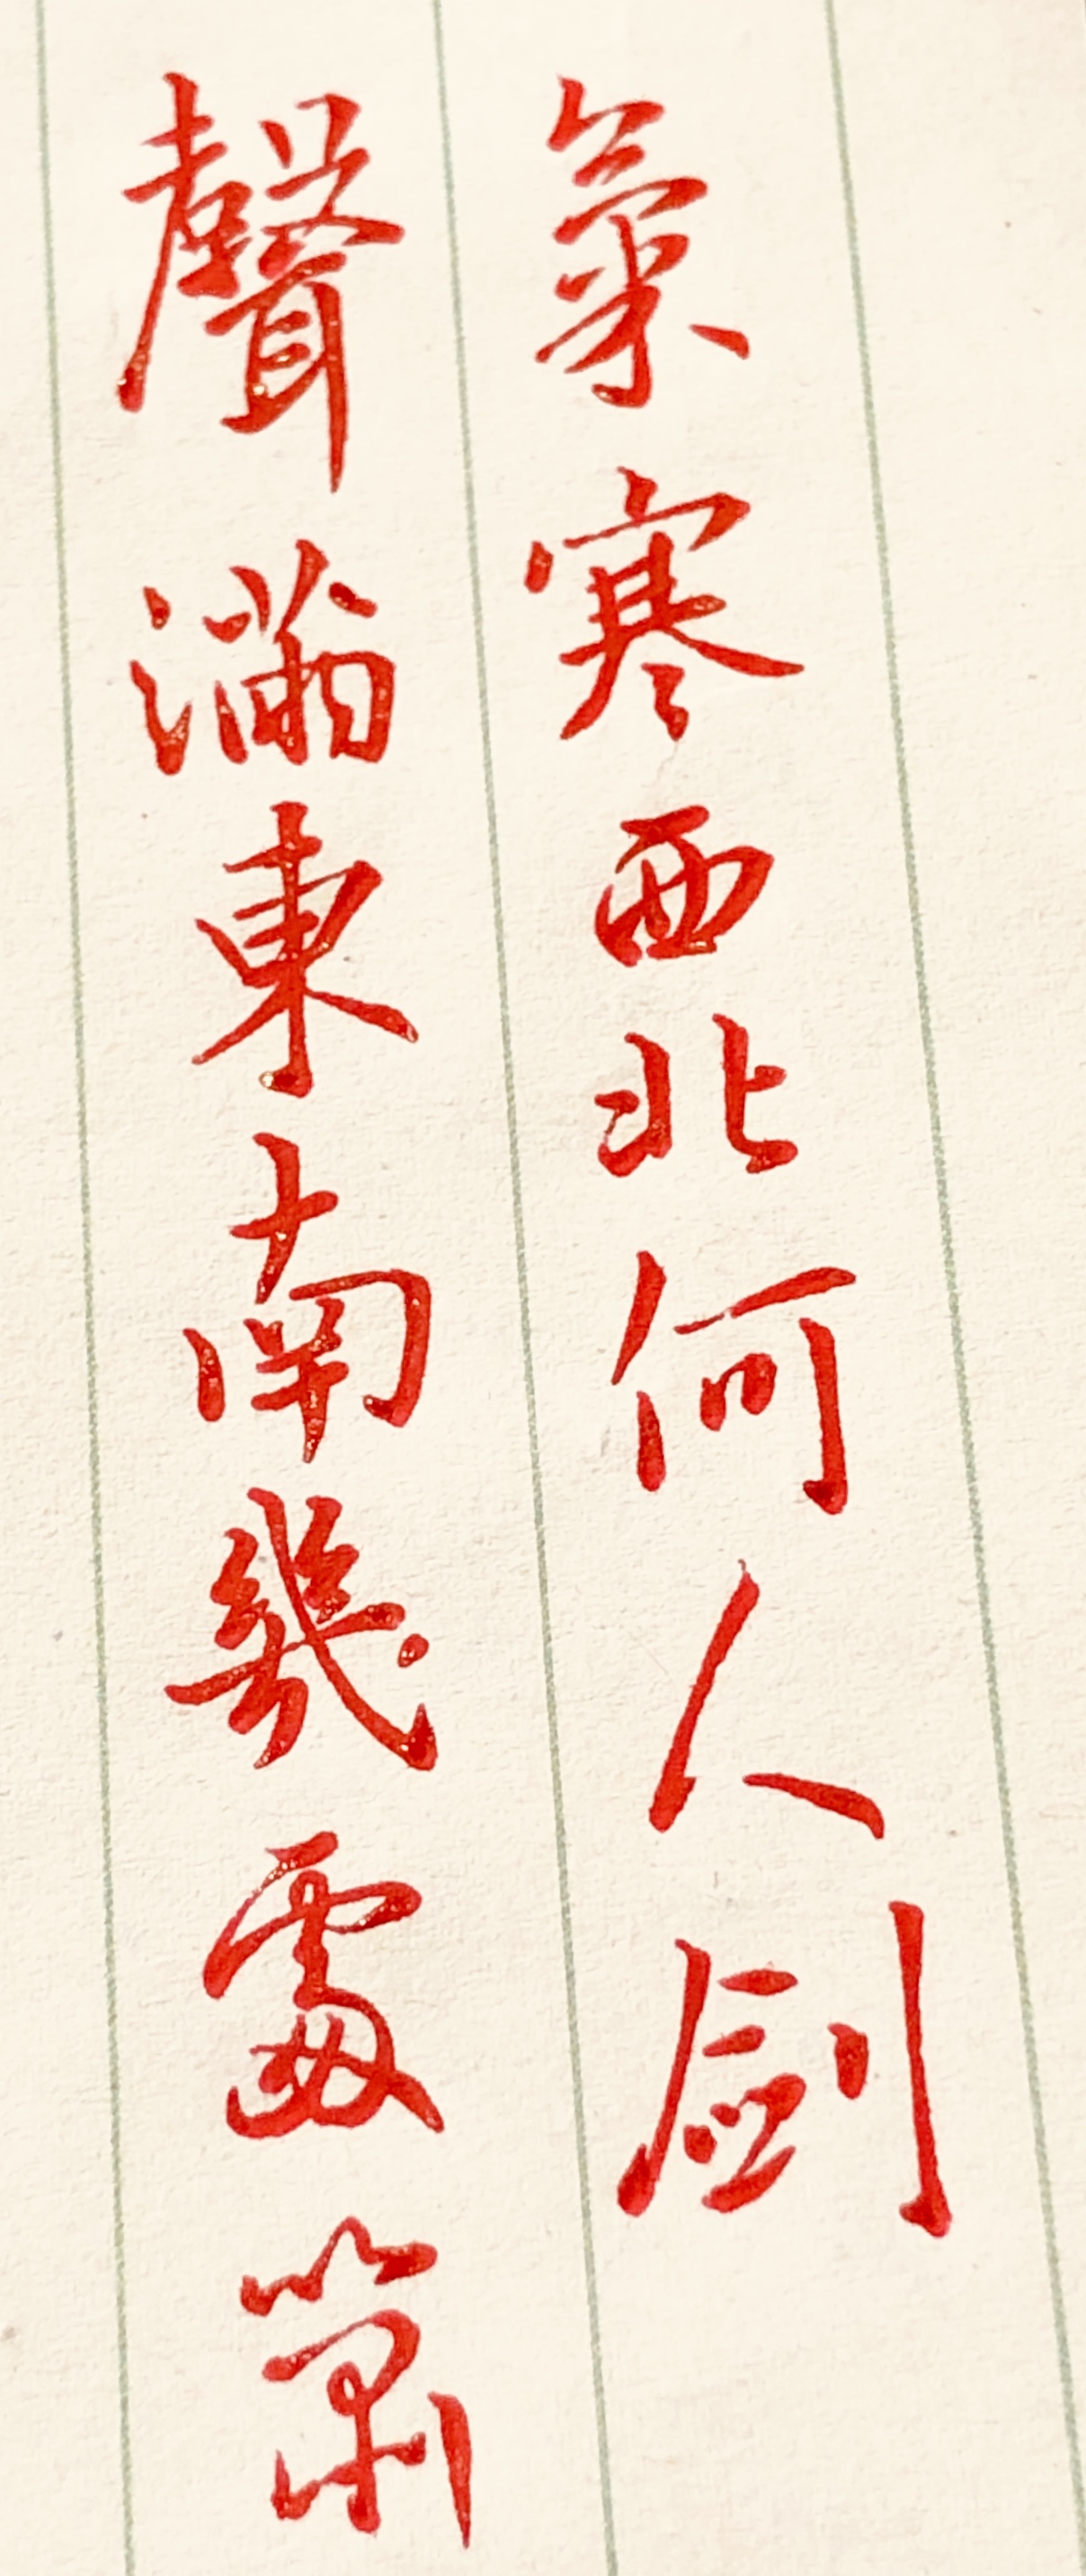 氣寒西北何人劍
聲滿東南幾處簫